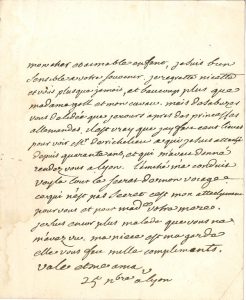 mon cher et aimable enfant, je suis bien
sensible a votre souvenir. je regrette nicette
et vous plus que jamais, et baucoup plus que
madame gott et mon cuvau. mais desabusez
vous de l'idée que je cours apres des princesses
allemandes. il est vray que j'ay fait cent lieues
pour voir mr de richelieu a qui je suis attaché
depuis quarante ans, et qui m'avait donné
rendez vous a lyon. l'amitié m'a conduit
voyla tout le secret de mon voiage
ce qui n'est pas secret c'est mon attachement
pour vous et pour made votre mere.
je suis bien plus malade que vous ne
m'avez vu. ma niece est ma garde
elle vous fait mille compliments.
vale et me ama
25 nbre a lyon